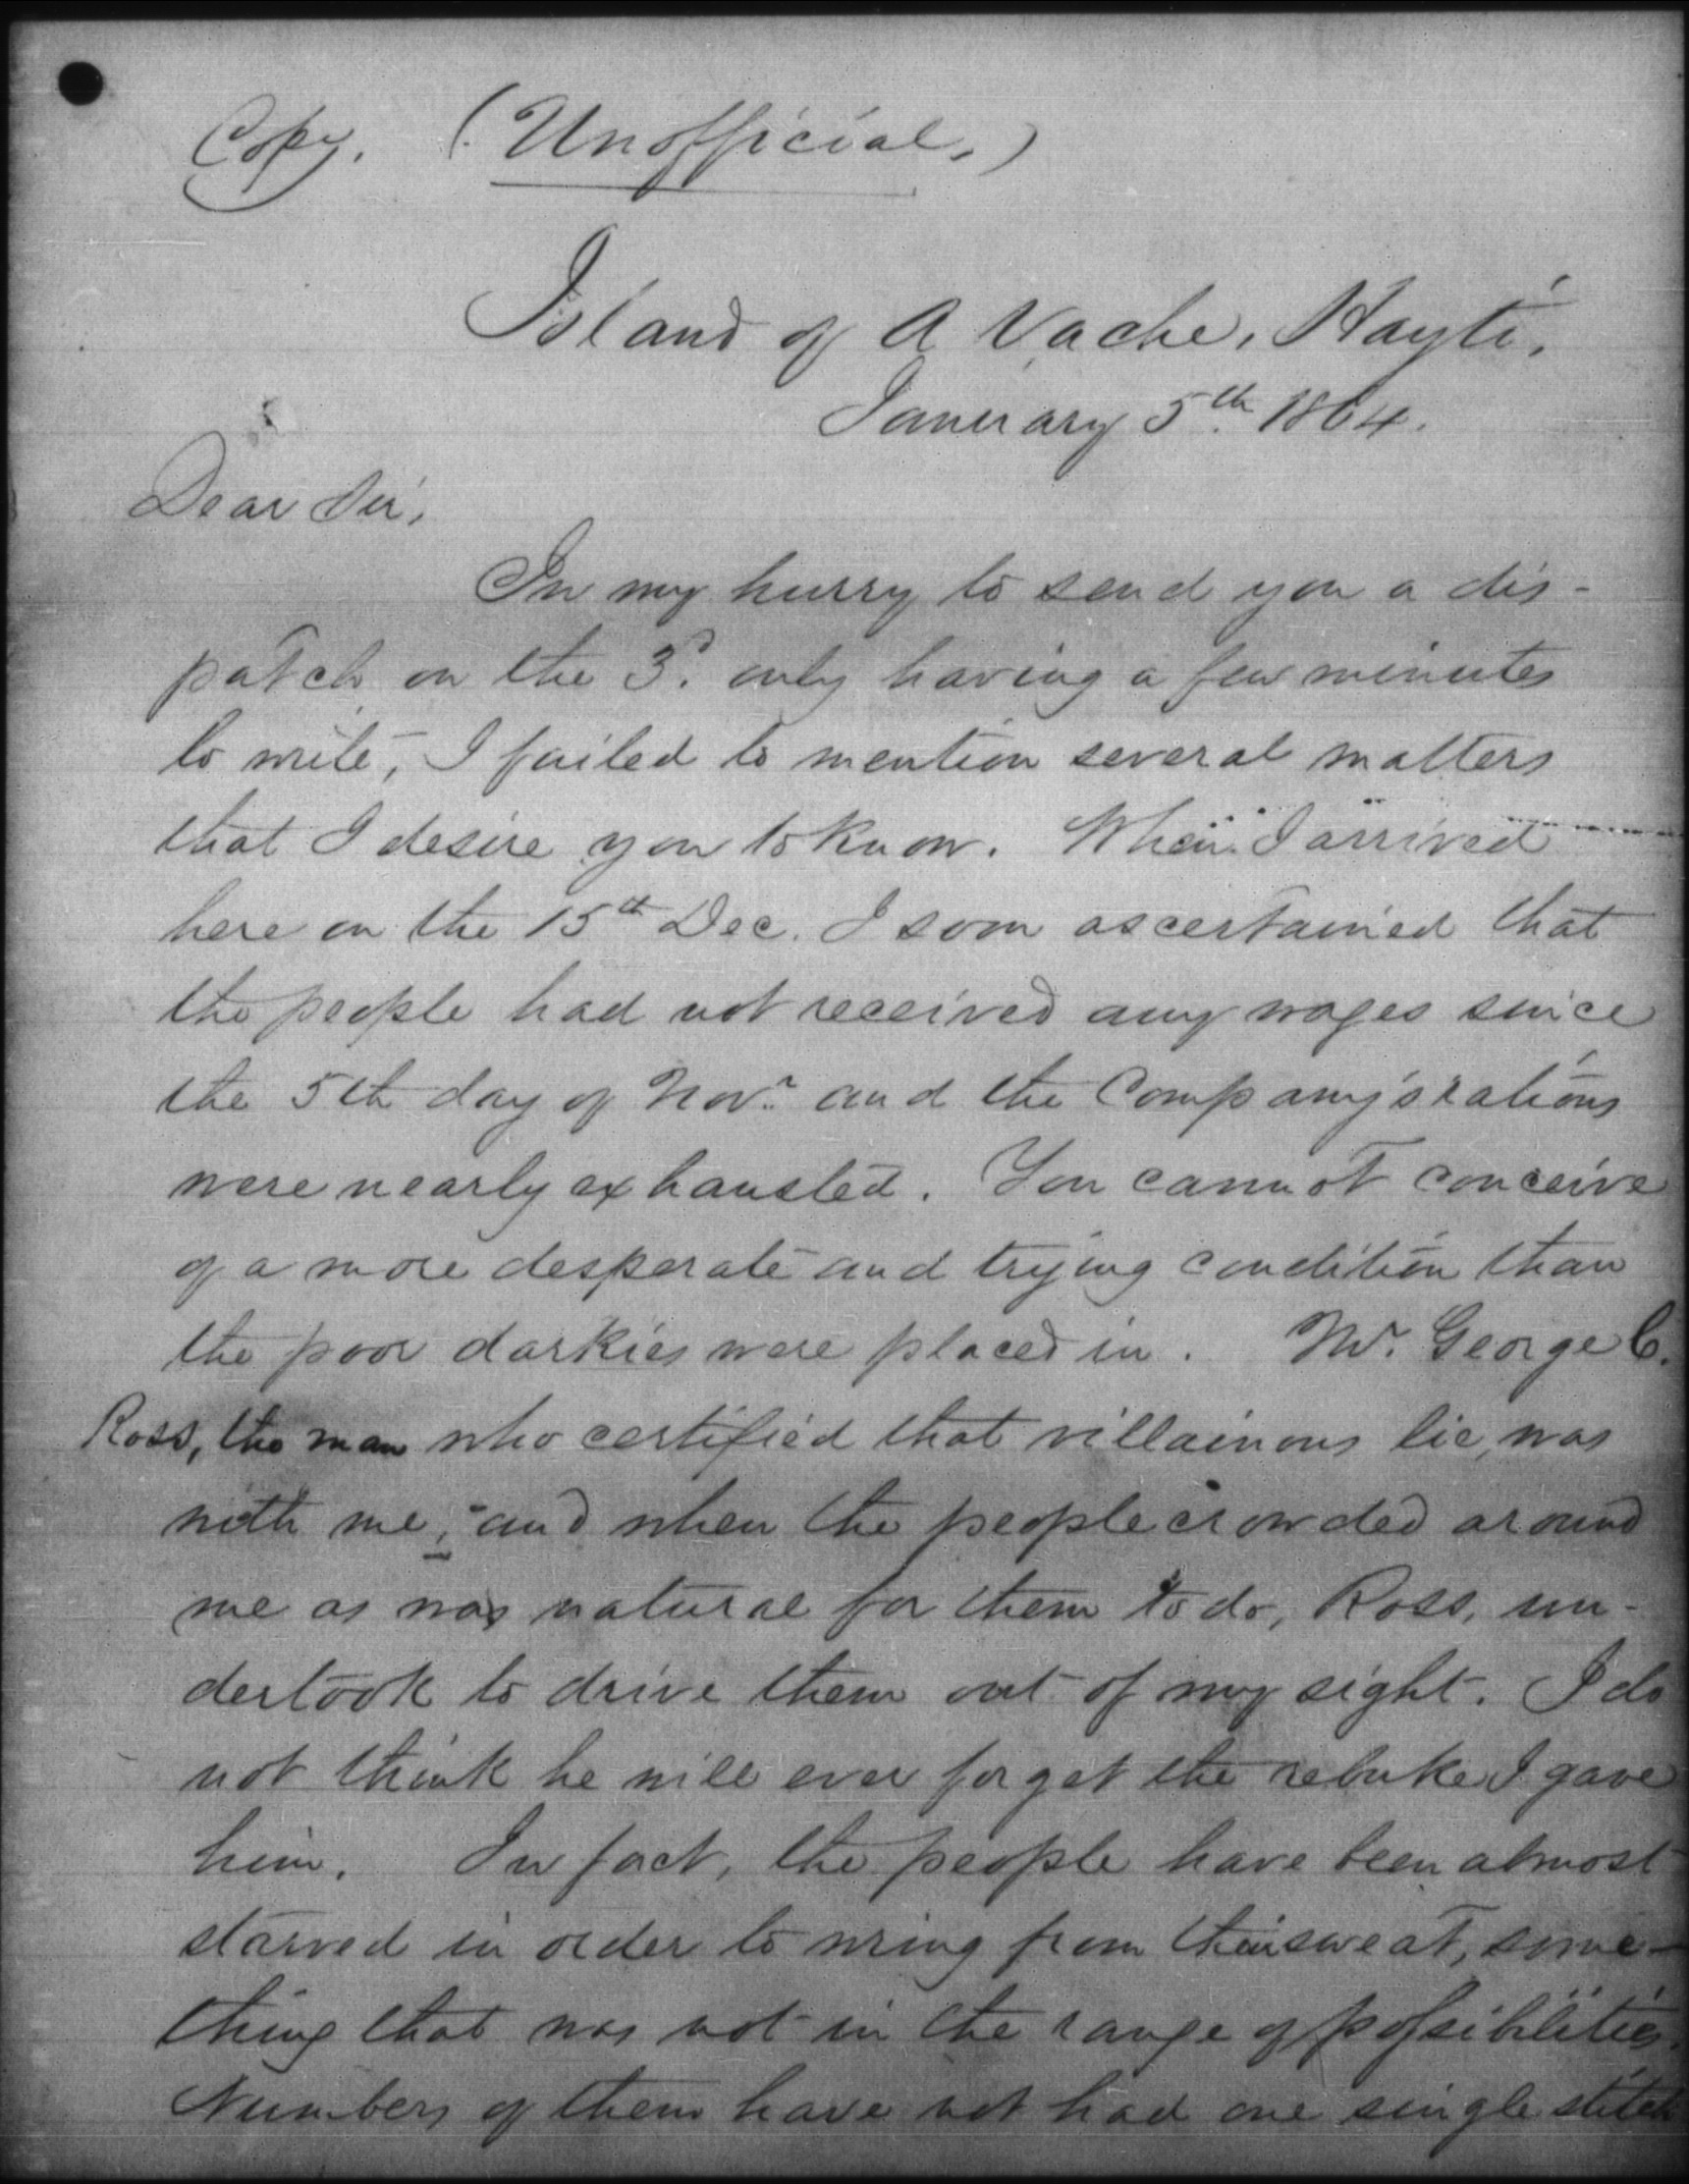 Copy. (Unofficial.)
Island of A Vache, Hayti.
January 5th 1864.
Dear Sir,
In my hurry to send you a dis-
patch on the 3d. only having a few minutes
to write, I failed to mention several matters
that I desire you to know. When I arrived
here on the 15th Dec. I soon ascertained that
the people had not received any wages since
the 5th day of Novr. and the Company's rations
were nearly exhausted. You cannot conceive
of a more desperate and trying condition than
the poor darkies were placed in. Mr. George C.
Ross, the man who certified that villainous lie, was
with me, and when the people crowded around
me as was natural for them to do, Ross, un-
dertook to drive them out of my sight. I do
not think he will ever forget the rebuke I gave
him. In fact, the people have been almost
starved in order to wring from their sweat, some-
thing that was not in the range of possibilities.
Numbers of them have not had one single stitch